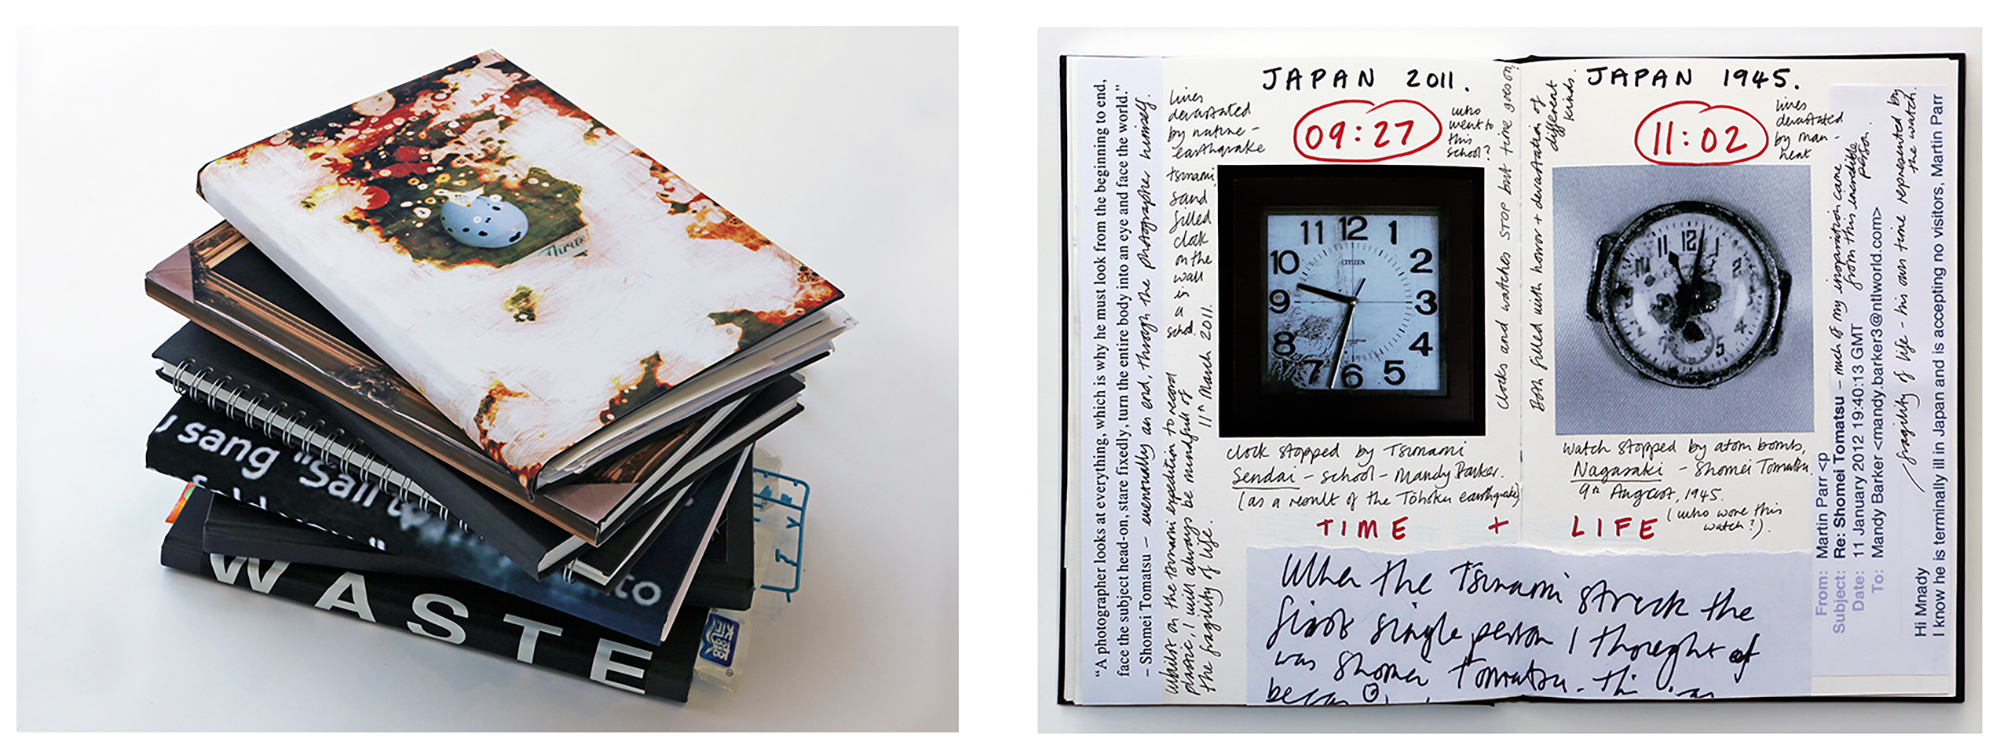 sang "Sail
to
WASTE
"A photographer looks at everything, which is why he must look from the beginning to end,
face the subject head-on, stare fixedly, turn the entire body into an eye and face the world."
– Shomei Tomatsu – eventually an end, through the photographer himself.
whilst on the tsunami expedition to record
plastic, I will always be mindful of
the fragility of life. 11th March 2011.
JAPAN 2011.
09:27
lives
devastated
by nature -
earthquake
tsunami
sand
filled
clock
on the
wall
in
a
school.
who
went to
this
school?
12
1
2
3
4
5
6
7
8
9
10
11
CITIZEN
clock stopped by Tsunami
Sendai - school - Mandy Barker.
(as a result of the Tōhoku earthquake)
Clocks and watches stop but time goes on?
Both filled with horror + devastation of
different
kinds.
JAPAN 1945.
11:02
lives
devastated
by man -
heat
11
12
5
watch stopped by atom bombs,
Nagasaki - Shomei Tomatsu.
9th August, 1945.
(who wore this
watch?).
TIME + LIFE
When the Tsunami struck the
first single person I thought of
was Shomei Tomatsu. This was
much of my inspiration came
from this incredible
person.
fragility of life - his own time represented by
the watch.
From: Martin Parr <p
Subject: Re: Shomei Tomatsu
Date: 11 January 2012 19:40:13 GMT
To: Mandy Barker <mandy.barker3@ntlworld.com>
Hi Mnady
I know he is terminally ill in Japan and is accepting no visitors, Martin Parr